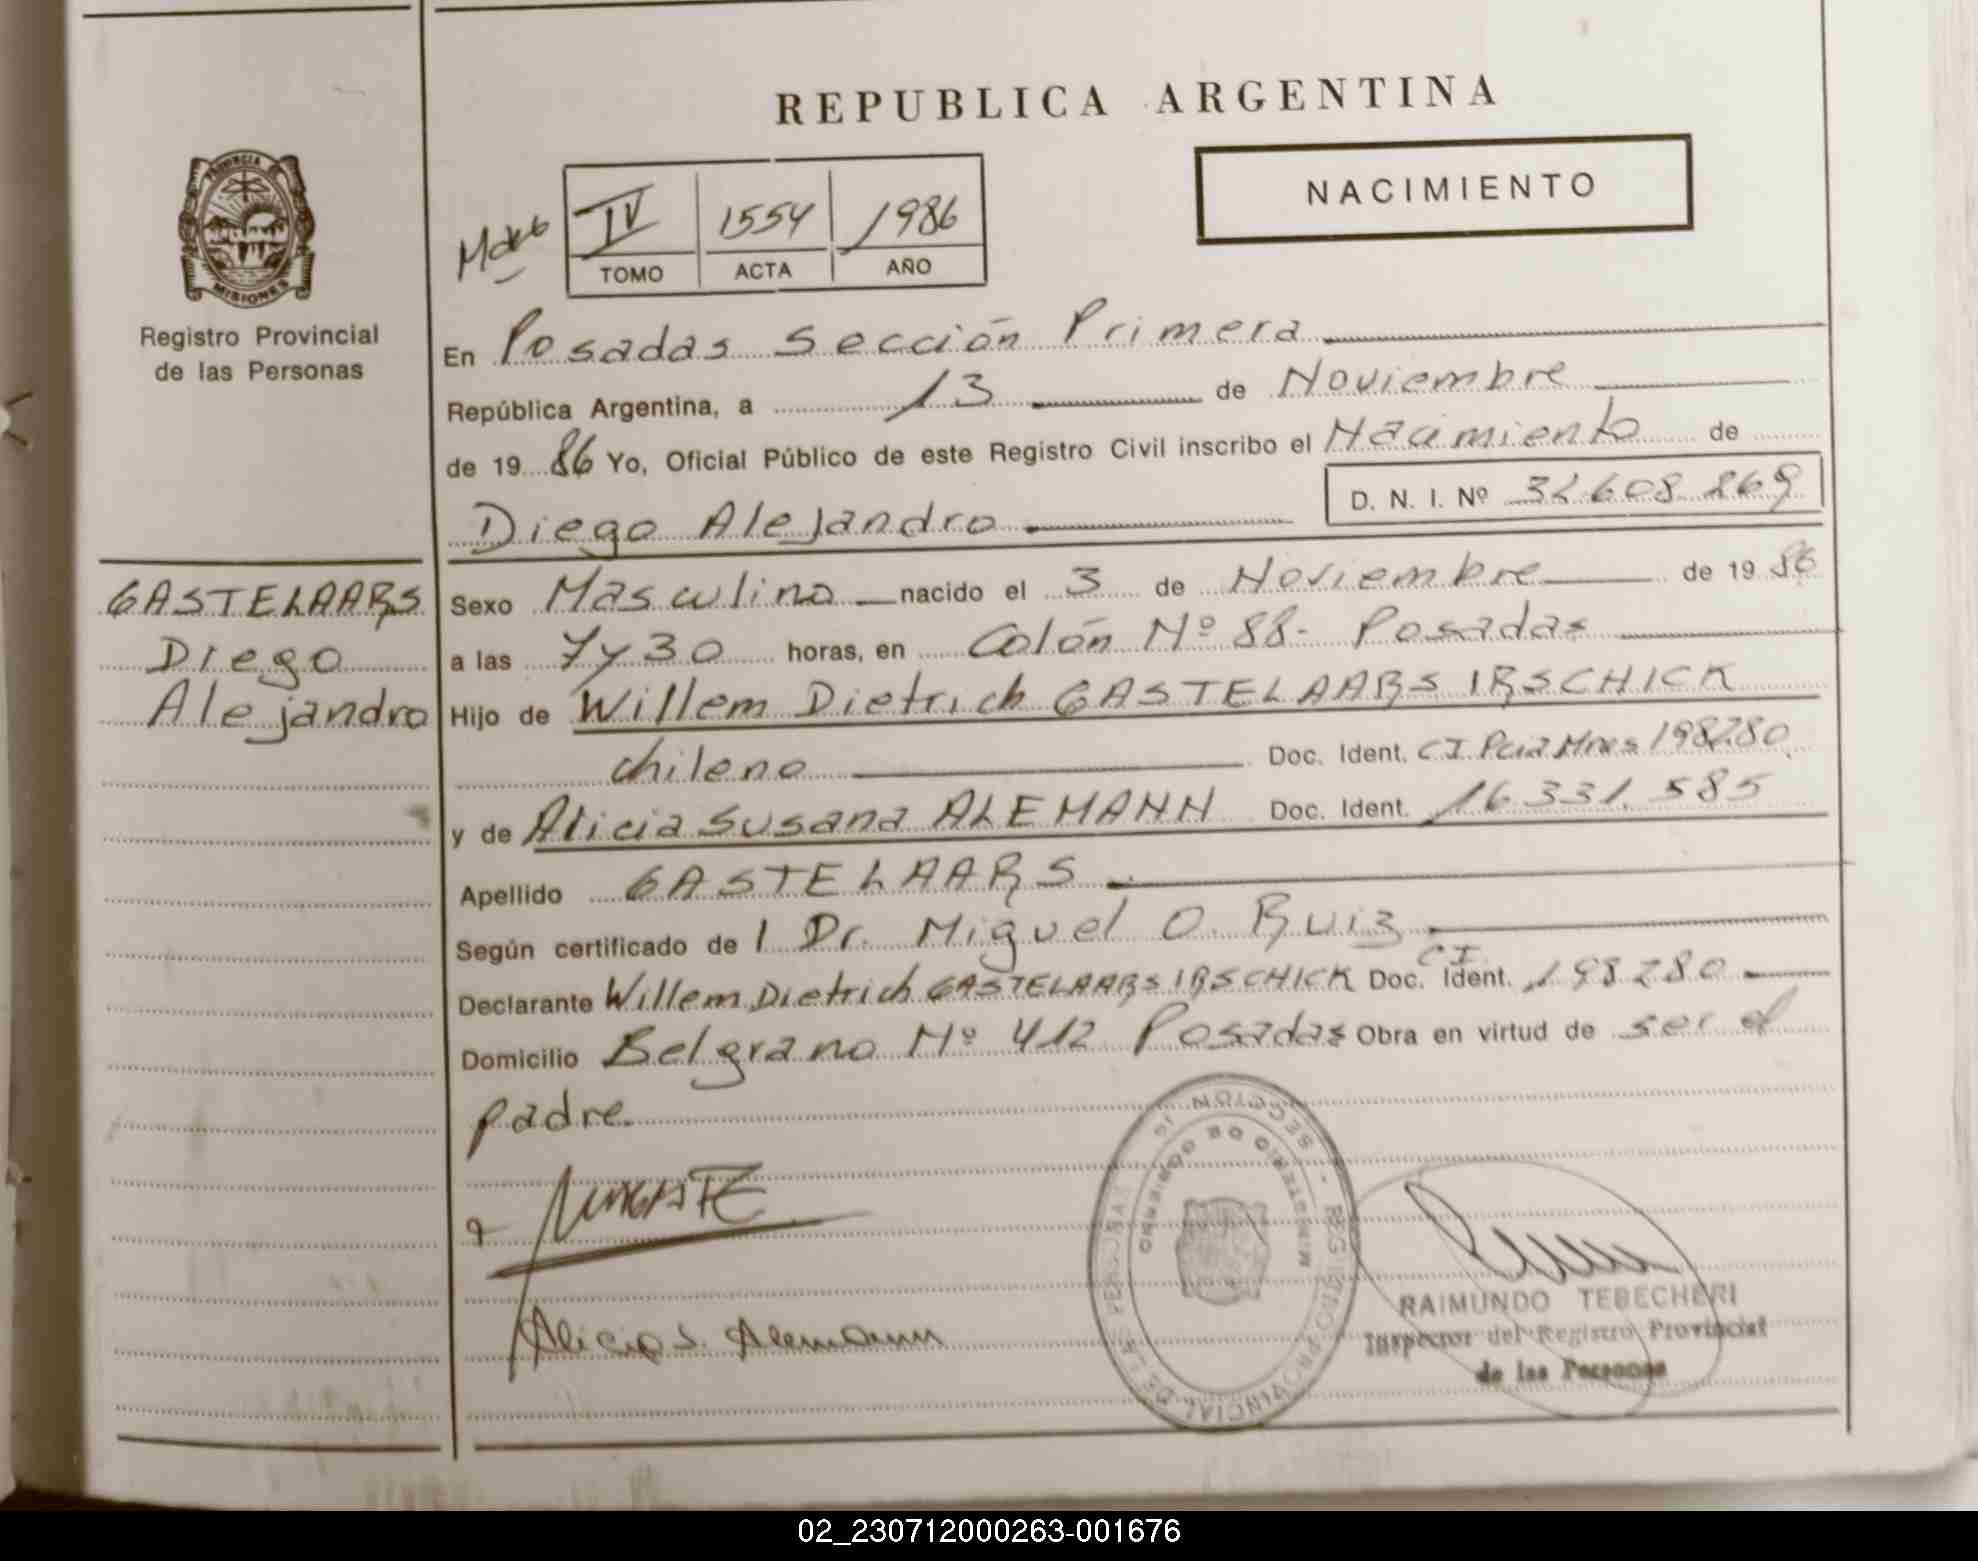 REPUBLICA ARGENTINA
NACIMIENTO
IV 1554 1986
TOMO ACTA AÑO
PROVINCIA
MISIONES
Registro Provincial
de las Personas
En Posadas Sección Primera
República Argentina, a 13 de Noviembre
de 19 86 Yo, Oficial Público de este Registro Civil inscribo el Nacimiento de
D. N. I. Nº 32.608.269
Diego Alejandro
GASTELAARS
Diego
Alejandro
Sexo Masculino nacido el 3 de Noviembre de 19 86
a las 7 y 30 horas, en Colón Nº 88- Posadas
Hijo de Willem Dietrich GASTELAARS IRSCHICK
chileno Doc. Ident. CI Pcia Mnes 198280
y de Alicia Susana ALEMANN Doc. Ident. 16.331.585
Apellido GASTELAARS
Según certificado de l Dr. Miguel O. Ruiz
Declarante Willem Dietrich GASTELAARS IRSCHICK Doc. Ident. CI 198280
Domicilio Belgrano Nº 412 Posadas Obra en virtud de ser el
padre.
Alicia S. Alemann
REGISTRO PROVINCIAL DE LAS PERSONAS - SECCION 1a
MINISTERIO DE GOBIERNO
RAIMUNDO TEBECHERI
Inspector del Registro Provincial
de las Personas
02_230712000263-001676